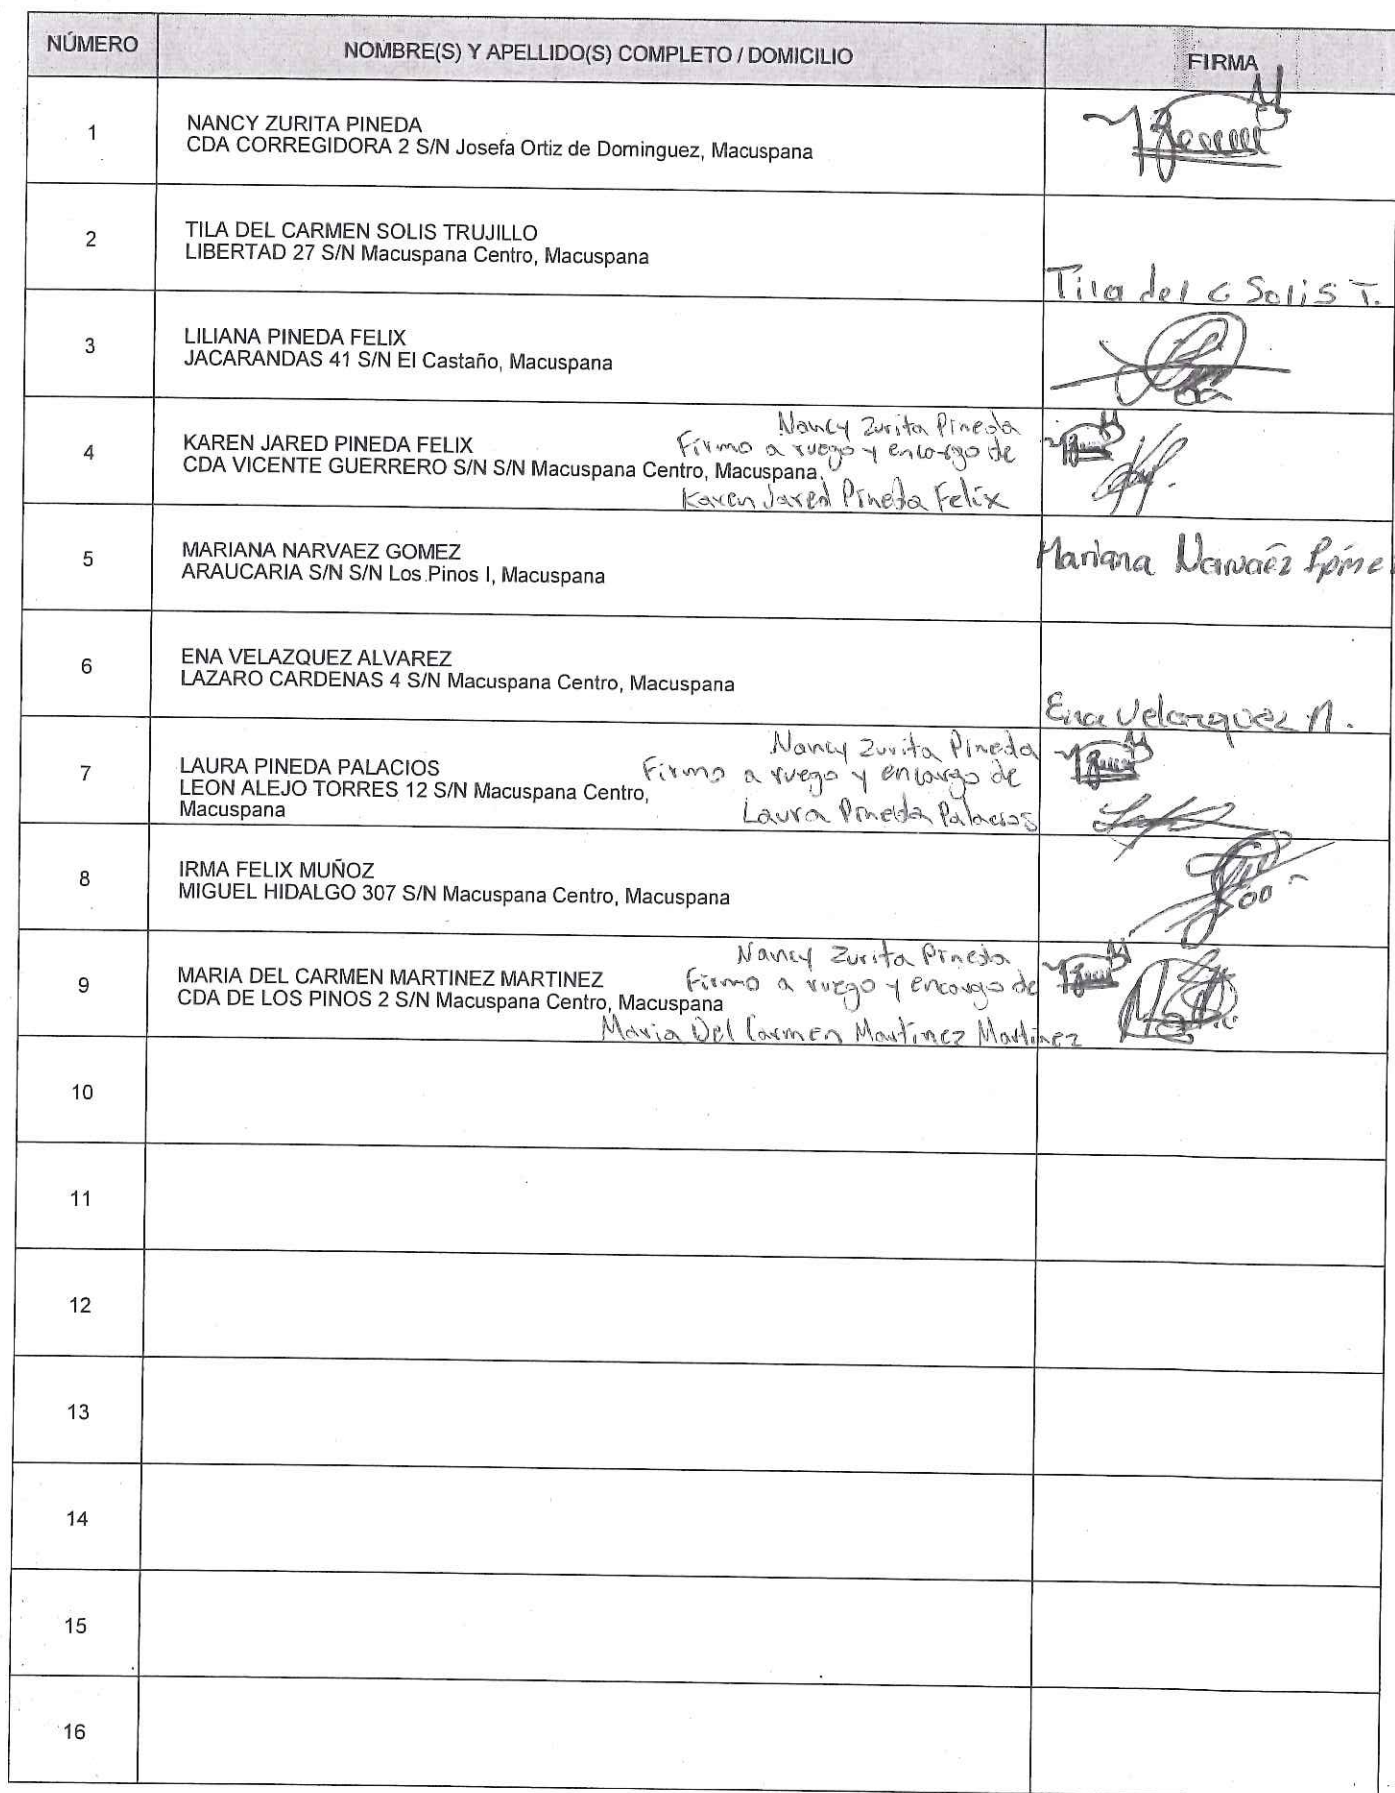 NÚMERO
NOMBRE(S) Y APELLIDO(S) COMPLETO / DOMICILIO
FIRMA
1
NANCY ZURITA PINEDA
CDA CORREGIDORA 2 S/N Josefa Ortiz de Dominguez, Macuspana
2
TILA DEL CARMEN SOLIS TRUJILLO
LIBERTAD 27 S/N Macuspana Centro, Macuspana
Tila del C Solis T.
3
LILIANA PINEDA FELIX
JACARANDAS 41 S/N El Castaño, Macuspana
4
KAREN JARED PINEDA FELIX
CDA VICENTE GUERRERO S/N S/N Macuspana Centro, Macuspana
Nancy Zurita Pineda
Firmo a ruego y encargo de
Karen Jared Pineda Felix
5
MARIANA NARVAEZ GOMEZ
ARAUCARIA S/N S/N Los Pinos I, Macuspana
Mariana Narváez
6
ENA VELAZQUEZ ALVAREZ
LAZARO CARDENAS 4 S/N Macuspana Centro, Macuspana
Ena Velazquez A.
7
LAURA PINEDA PALACIOS
LEON ALEJO TORRES 12 S/N Macuspana Centro,
Macuspana
Nancy Zurita Pineda
Firmo a ruego y encargo de
Laura Pineda Palacios
8
IRMA FELIX MUÑOZ
MIGUEL HIDALGO 307 S/N Macuspana Centro, Macuspana
9
MARIA DEL CARMEN MARTINEZ MARTINEZ
CDA DE LOS PINOS 2 S/N Macuspana Centro, Macuspana
Nancy Zurita Pineda
Firmo a ruego y encargo de
Maria Del Carmen Martinez Martinez
10
11
12
13
14
15
16